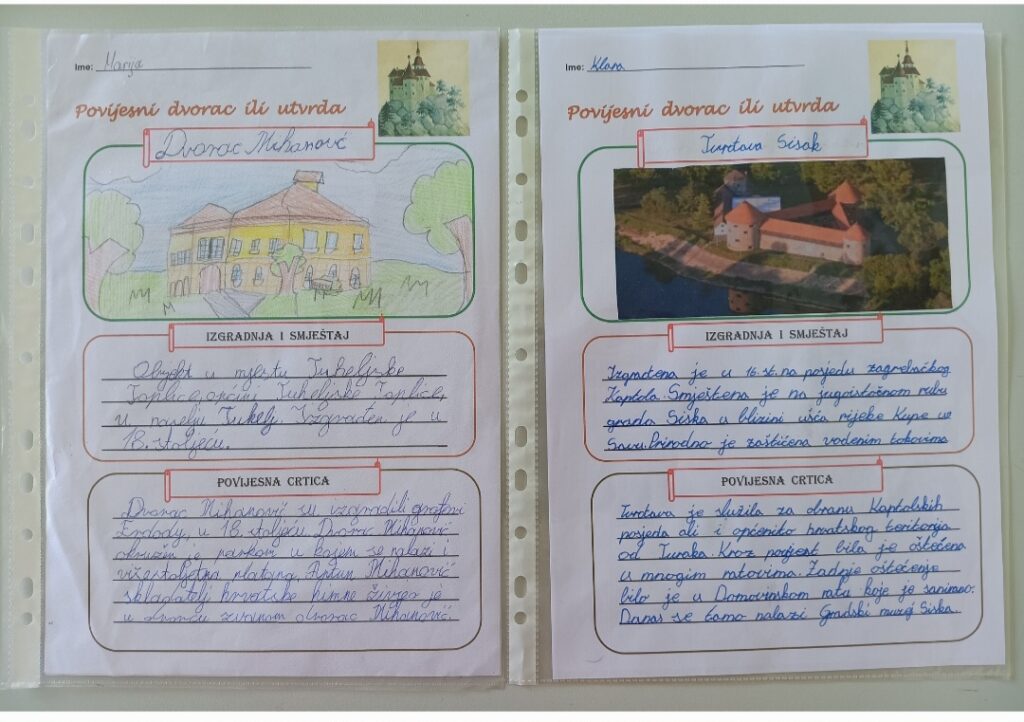 Ime: Marija
Povijesni dvorac ili utvrda
Dvorac Mihanović
IZGRADNJA I SMJEŠTAJ
Objekt u mjestu Tuheljske
Toplice, općini Tuheljske Toplice,
u naselju Tuhelj. Izgrađen je u
18. stoljeću.
POVIJESNA CRTICA
Dvorac Mihanović su izgradili grofovi
Erdody, u 18. stoljeću. Dvorac Mihanović
okružen je parkom u kojem se nalazi i
višestoljetna platana. Antun Mihanović
skladatelj hrvatske himne živio je
u dvorcu zvanom dvorac Mihanović.
Ime: Klara
Povijesni dvorac ili utvrda
Tvrđava Sisak
IZGRADNJA I SMJEŠTAJ
Izgrađena je u 16. st. na posjedu zagrebačkog
Kaptola. Smještena je na jugoistočnom rubu
grada Siska u blizini ušća rijeke Kupe u
Savu. Prirodno je zaštićena vodenim tokovima
POVIJESNA CRTICA
Tvrđava je služila za obranu Kaptolskih
posjeda ali i općenito hrvatskog teritorija
od Turaka. Kroz povijest bila je oštećena
u mnogim ratovima. Zadnje oštećenje
bilo je u Domovinskom ratu koje je sanirano.
Danas se tamo nalazi Gradski muzej Siska.